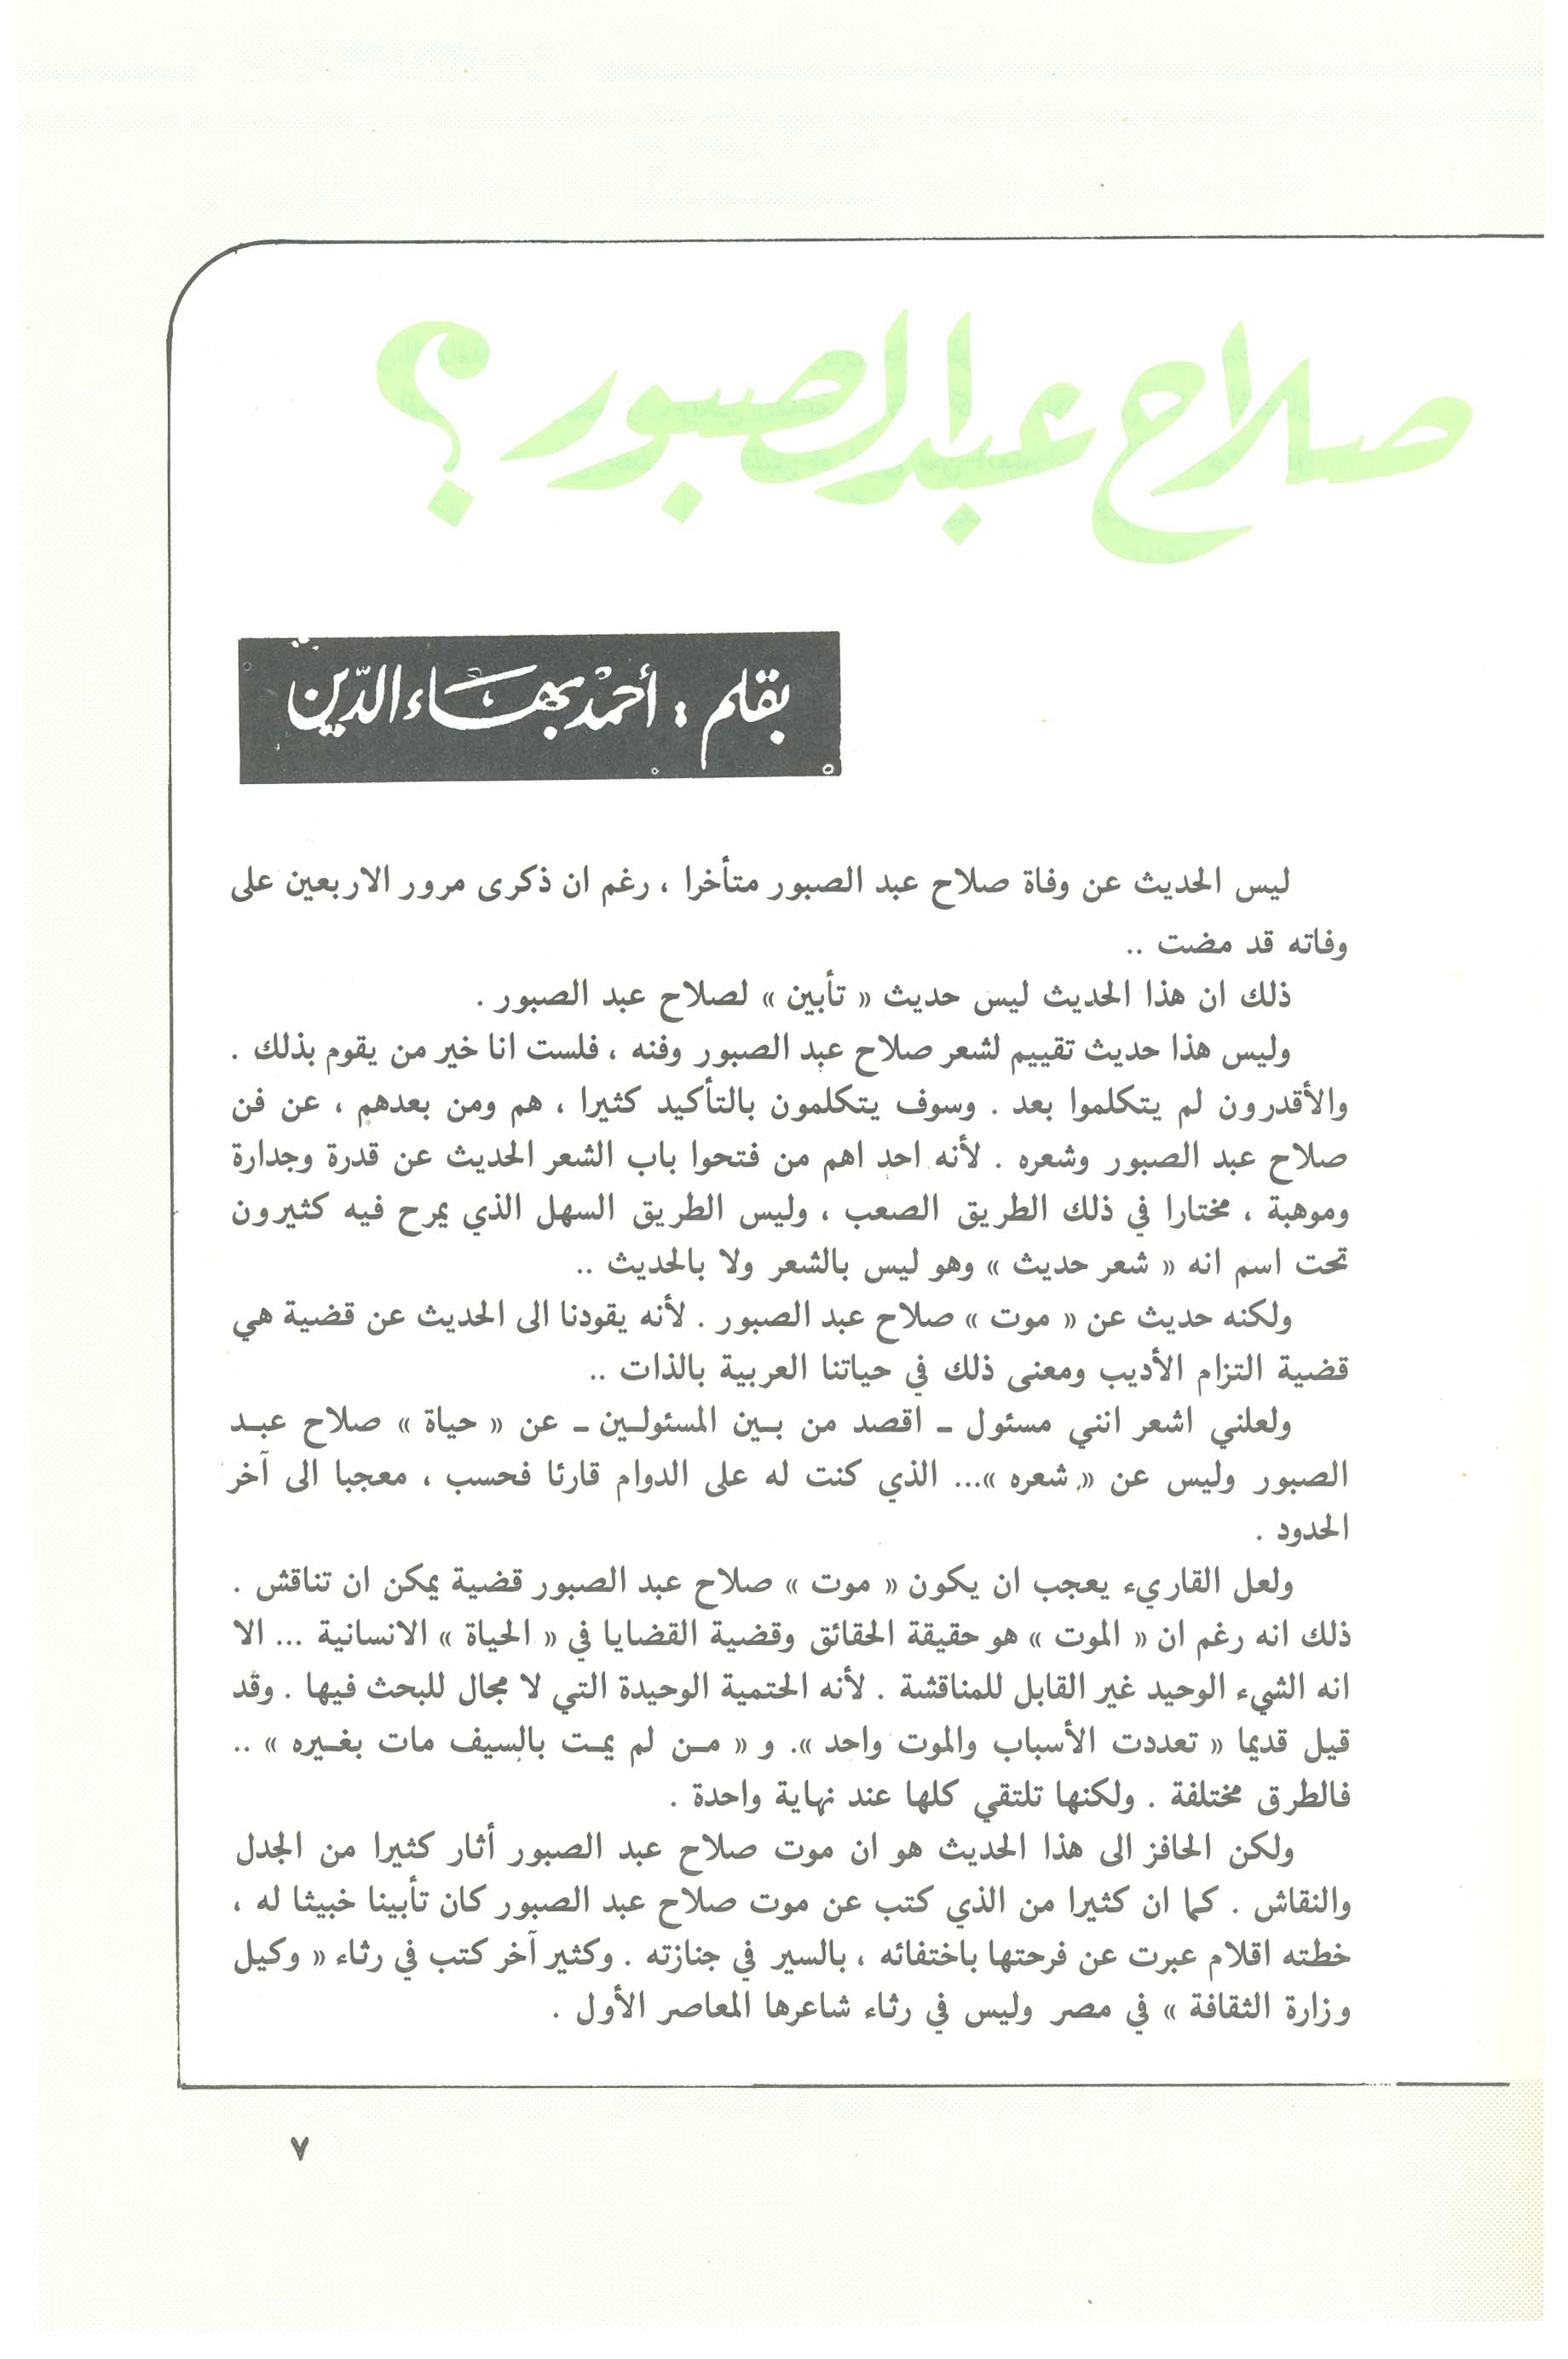 صلاح عبد الصبور ؟
بقلم : أحمد بهاء الدّين
ليس الحديث عن وفاة صلاح عبد الصبور متأخرا ، رغم ان ذكرى مرور الاربعين على
وفاته قد مضت ..
ذلك ان هذا الحديث ليس حديث « تأبين » لصلاح عبد الصبور .
وليس هذا حديث تقييم لشعر صلاح عبد الصبور وفنه ، فلست انا خير من يقوم بذلك .
والأقدرون لم يتكلموا بعد . وسوف يتكلمون بالتأكيد كثيرا ، هم ومن بعدهم ، عن فن
صلاح عبد الصبور وشعره . لأنه احد اهم من فتحوا باب الشعر الحديث عن قدرة وجدارة
وموهبة ، مختارا في ذلك الطريق الصعب ، وليس الطريق السهل الذي يمرح فيه كثيرون
تحت اسم انه « شعر حديث » وهو ليس بالشعر ولا بالحديث ..
ولكنه حديث عن « موت » صلاح عبد الصبور . لأنه يقودنا الى الحديث عن قضية هي
قضية التزام الأديب ومعنى ذلك في حياتنا العربية بالذات ..
ولعلني اشعر انني مسئول ـ اقصد من بـين المسئولـين ـ عن « حياة » صلاح عبـد
الصبور وليس عن « شعره »... الذي كنت له على الدوام قارئا فحسب ، معجبا الى آخر
الحدود .
ولعل القاريء يعجب ان يكون « موت » صلاح عبد الصبور قضية يمكن ان تناقش .
ذلك انه رغم ان « الموت » هو حقيقة الحقائق وقضية القضايا في « الحياة » الانسانية ... الا
انه الشيء الوحيد غير القابل للمناقشة . لأنه الحتمية الوحيدة التي لا مجال للبحث فيها . وقد
قيل قديما « تعددت الأسباب والموت واحد ». و « مـن لم يمـت بالسيف مات بغـيره » ..
فالطرق مختلفة . ولكنها تلتقي كلها عند نهاية واحدة .
ولكن الحافز الى هذا الحديث هو ان موت صلاح عبد الصبور أثار كثيرا من الجدل
والنقاش . كما ان كثيرا من الذي كتب عن موت صلاح عبد الصبور كان تأبينا خبيثا له ،
خطته اقلام عبرت عن فرحتها باختفائه ، بالسير في جنازته . وكثير آخر كتب في رثاء « وكيل
وزارة الثقافة » في مصر وليس في رثاء شاعرها المعاصر الأول .
٧